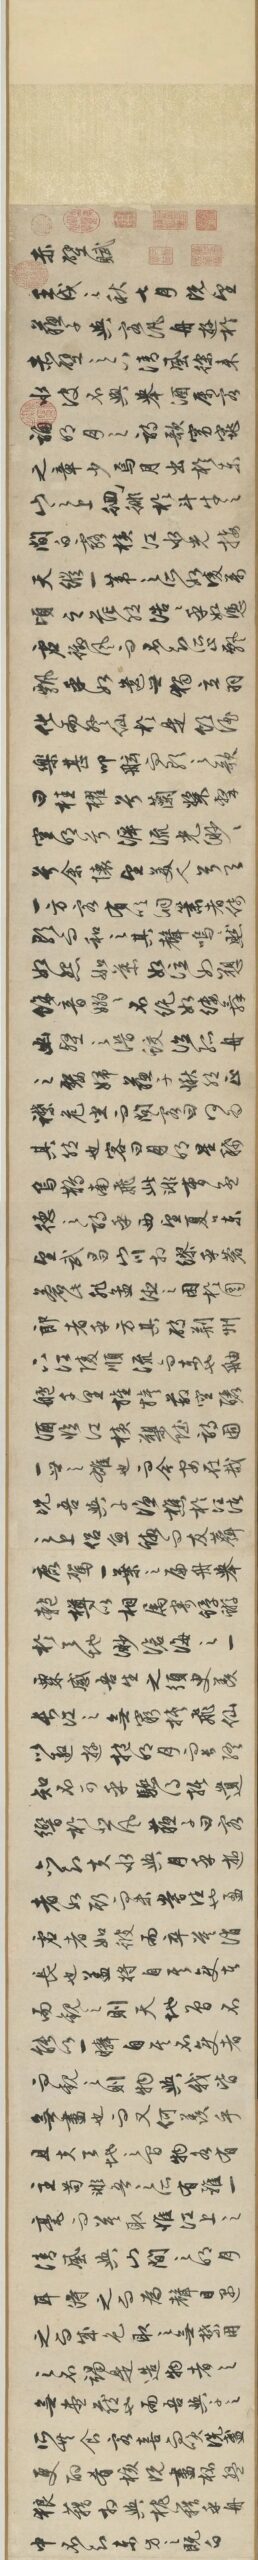 赤壁賦
壬戌之秋七月既望
蘇子與客泛舟遊於
赤壁之下清風徐來
水波不興舉酒屬客
誦明月之詩歌窈窕
之章少焉月出於東
山之上徘徊於斗牛之
間白露橫江水光接
天縱一葦之所如凌萬
頃之茫然浩浩乎如憑
虛御風而不知所止飄
飄乎如遺世獨立羽
化而登仙於是飲酒
樂甚叩舷而歌之歌
曰桂櫂兮蘭槳擊
空明兮泝流光渺渺
兮余懷望美人兮天
一方客有吹洞簫者倚
歌而和之其聲嗚嗚然
如怨如慕如泣如訴
餘音嫋嫋不絕如縷舞
幽壑之潛蛟泣孤舟
之嫠婦蘇子愀然正
襟危坐而問客曰何為
其然也客曰月明星稀
烏鵲南飛此非曹孟
德之詩乎西望夏口東
望武昌山川相繆乎蒼
蒼此非孟德之困於周
郎者乎方其破荊州
下江陵順流而東也舳
艫千里旌旗蔽空釃
酒臨江橫槊賦詩固
一世之雄也而今安在哉
況吾與子漁樵於江渚
之上侶魚鰕而友麋
鹿駕一葉之扁舟舉
匏樽以相屬寄蜉蝣
於天地渺滄海之一
粟哀吾生之須臾羨
長江之無窮挾飛仙
以遨遊抱明月而長終
知不可乎驟得託遺
響於悲風蘇子曰客
亦知夫水與月乎逝
者如斯而未嘗往也盈
虛者如彼而卒莫消
長也蓋將自其變者
而觀之則天地曾不
能以一瞬自其不變者
而觀之則物與我皆
無盡也而又何羨乎
且夫天地之間物各有
主苟非吾之所有雖一
毫而莫取惟江上之
清風與山間之明月
耳得之而為聲目遇
之而成色取之無禁用
之不竭是造物者之
無盡藏也而吾與子之
所共食客喜而笑洗盞
更酌肴核既盡杯盤
狼藉相與枕藉乎舟
中不知東方之既白